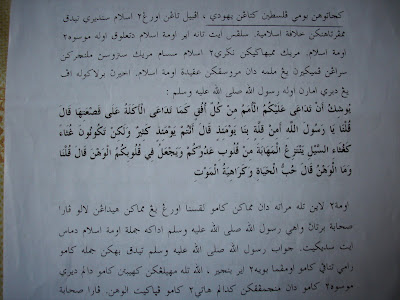 كجاتوهن بومي فلسطين كتاڠن يهودي ، اقبيل تاڠن اورڠ٢ اسلام سنديري تيدق
ممڤرتاهنكن خلافة اسلامية. سلڤس ايت تانه اير اومة اسلام دتعلوق اوله موسوه٢
اومة اسلام. مريك ممبهاݢيكن نݢري٢ اسلام مسام مريك سنروسڽ ملنچركن
سراڠن ڤميكيرن يڠ ملمه دان مروسقكن عقيدة اومة اسلام. اخيرڽ برلاكوله اڤ
يڠ دبري امارن اوله رسول الله صلى الله عليه وسلم :
يُوشِكُ أَنْ تَدَاعَى عَلَيْكُمُ الْأُمَمُ مِنْ كُلِّ أُفُقٍ كَمَا تَدَاعَى الْأَكَلَةُ عَلَى قَصْعَتِهَا قَالَ
قُلْنَا يَا رَسُولَ اللَّهِ أَمِنْ قِلَّةٍ بِنَا يَوْمَئِذٍ قَالَ أَنْتُمْ يَوْمَئِذٍ كَثِيرٌ وَلَكِنْ تَكُونُونَ غُثَاءً
كَغُثَاءِ السَّيْلِ يَنْتَزِعُ الْمَهَابَةَ مِنْ قُلُوبِ عَدُوِّكُمْ وَيَجْعَلُ فِي قُلُوبِكُمُ الْوَهْنَ قَالَ قُلْنَا
وَمَا الْوَهْنُ قَالَ حُبُّ الْحَيَاةِ وَكَرَاهِيَةُ الْمَوْتِ
اومة٢ لاين تله مراته دان مماكن كامو لقسنا اورڠ يڠ مماكن هيداڠن لالو ڤارا
صحابة برتاڽ واهي رسول الله صلى الله عليه وسلم اداكه جملة اومة اسلام دماس
ايت سديكيت. جواب رسول الله صلى الله عليه وسلم تيدق بهكن جمله كامو
رامي تتاڤي كامو اومڤما بويه٢ اير بنجير ، الله تله مهيلڠكن كهيبتن كامو دالم ديري
موسوه٢ كامو دان منچمڤقكن كدالم هاتي٢ كامو ڤڽاكيت الوهن. ڤارا صحابة